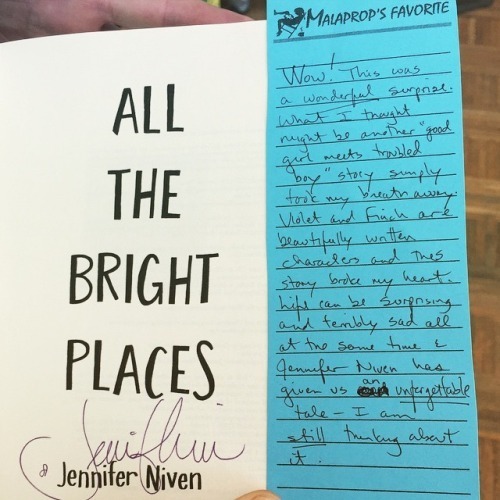 ALL
THE
BRIGHT
PLACES
Jennifer Niven
MALAPROP'S FAVORITE
Wow! This was
a wonderful surprise.
What I thought
might be another "good
girl meets troubled
boy" story simply
took my breath away.
Violet and Finch are
beautifully written
characters and this
story broke my heart.
Life can be surprising
and terribly sad all
at the same time &
Jennifer Niven has
given us an unforgettable
tale - I am
still thinking about
it.